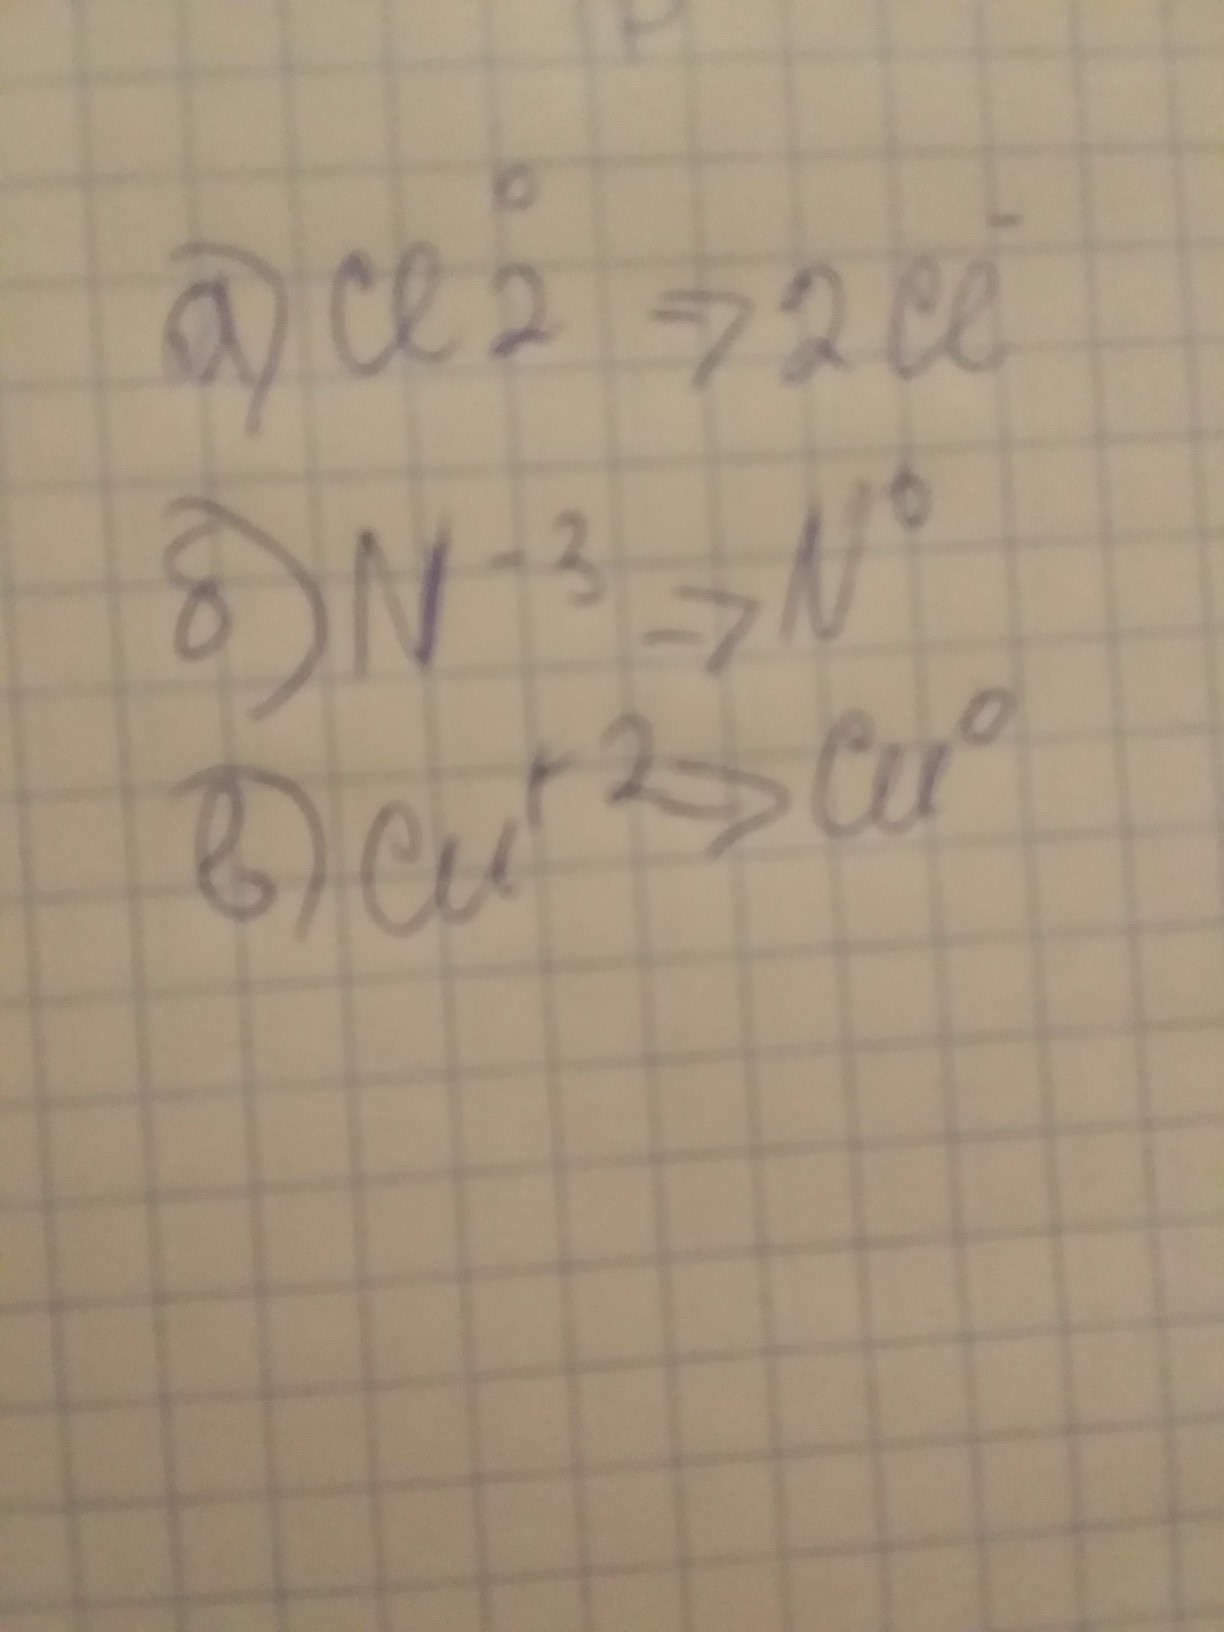 а) Cl₂⁰ ⇒ 2Cl⁻
б) N⁻³ ⇒ N⁰
в) Cu⁺² ⇒ Cu⁰